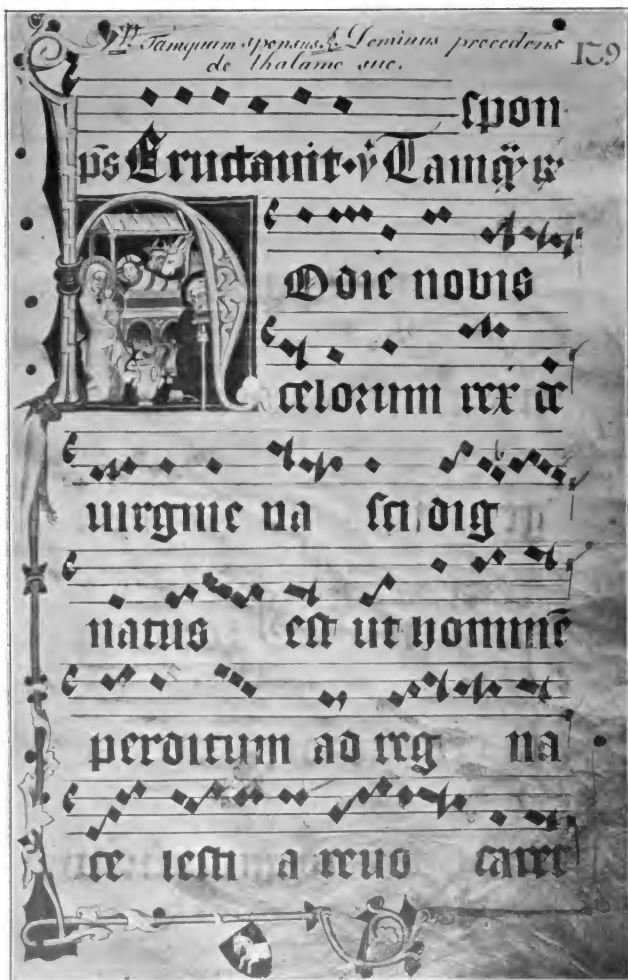 Tamquam sponsus. Dominus procedens
de thalamo suo.
139
spon
ps̄ Eructauit. ℣ Tamq̄
Odie nobis
celorum rex de
uirgine na sci dig
natus est ut hominē
perditum ad reg na
ce lesti a reuo caret